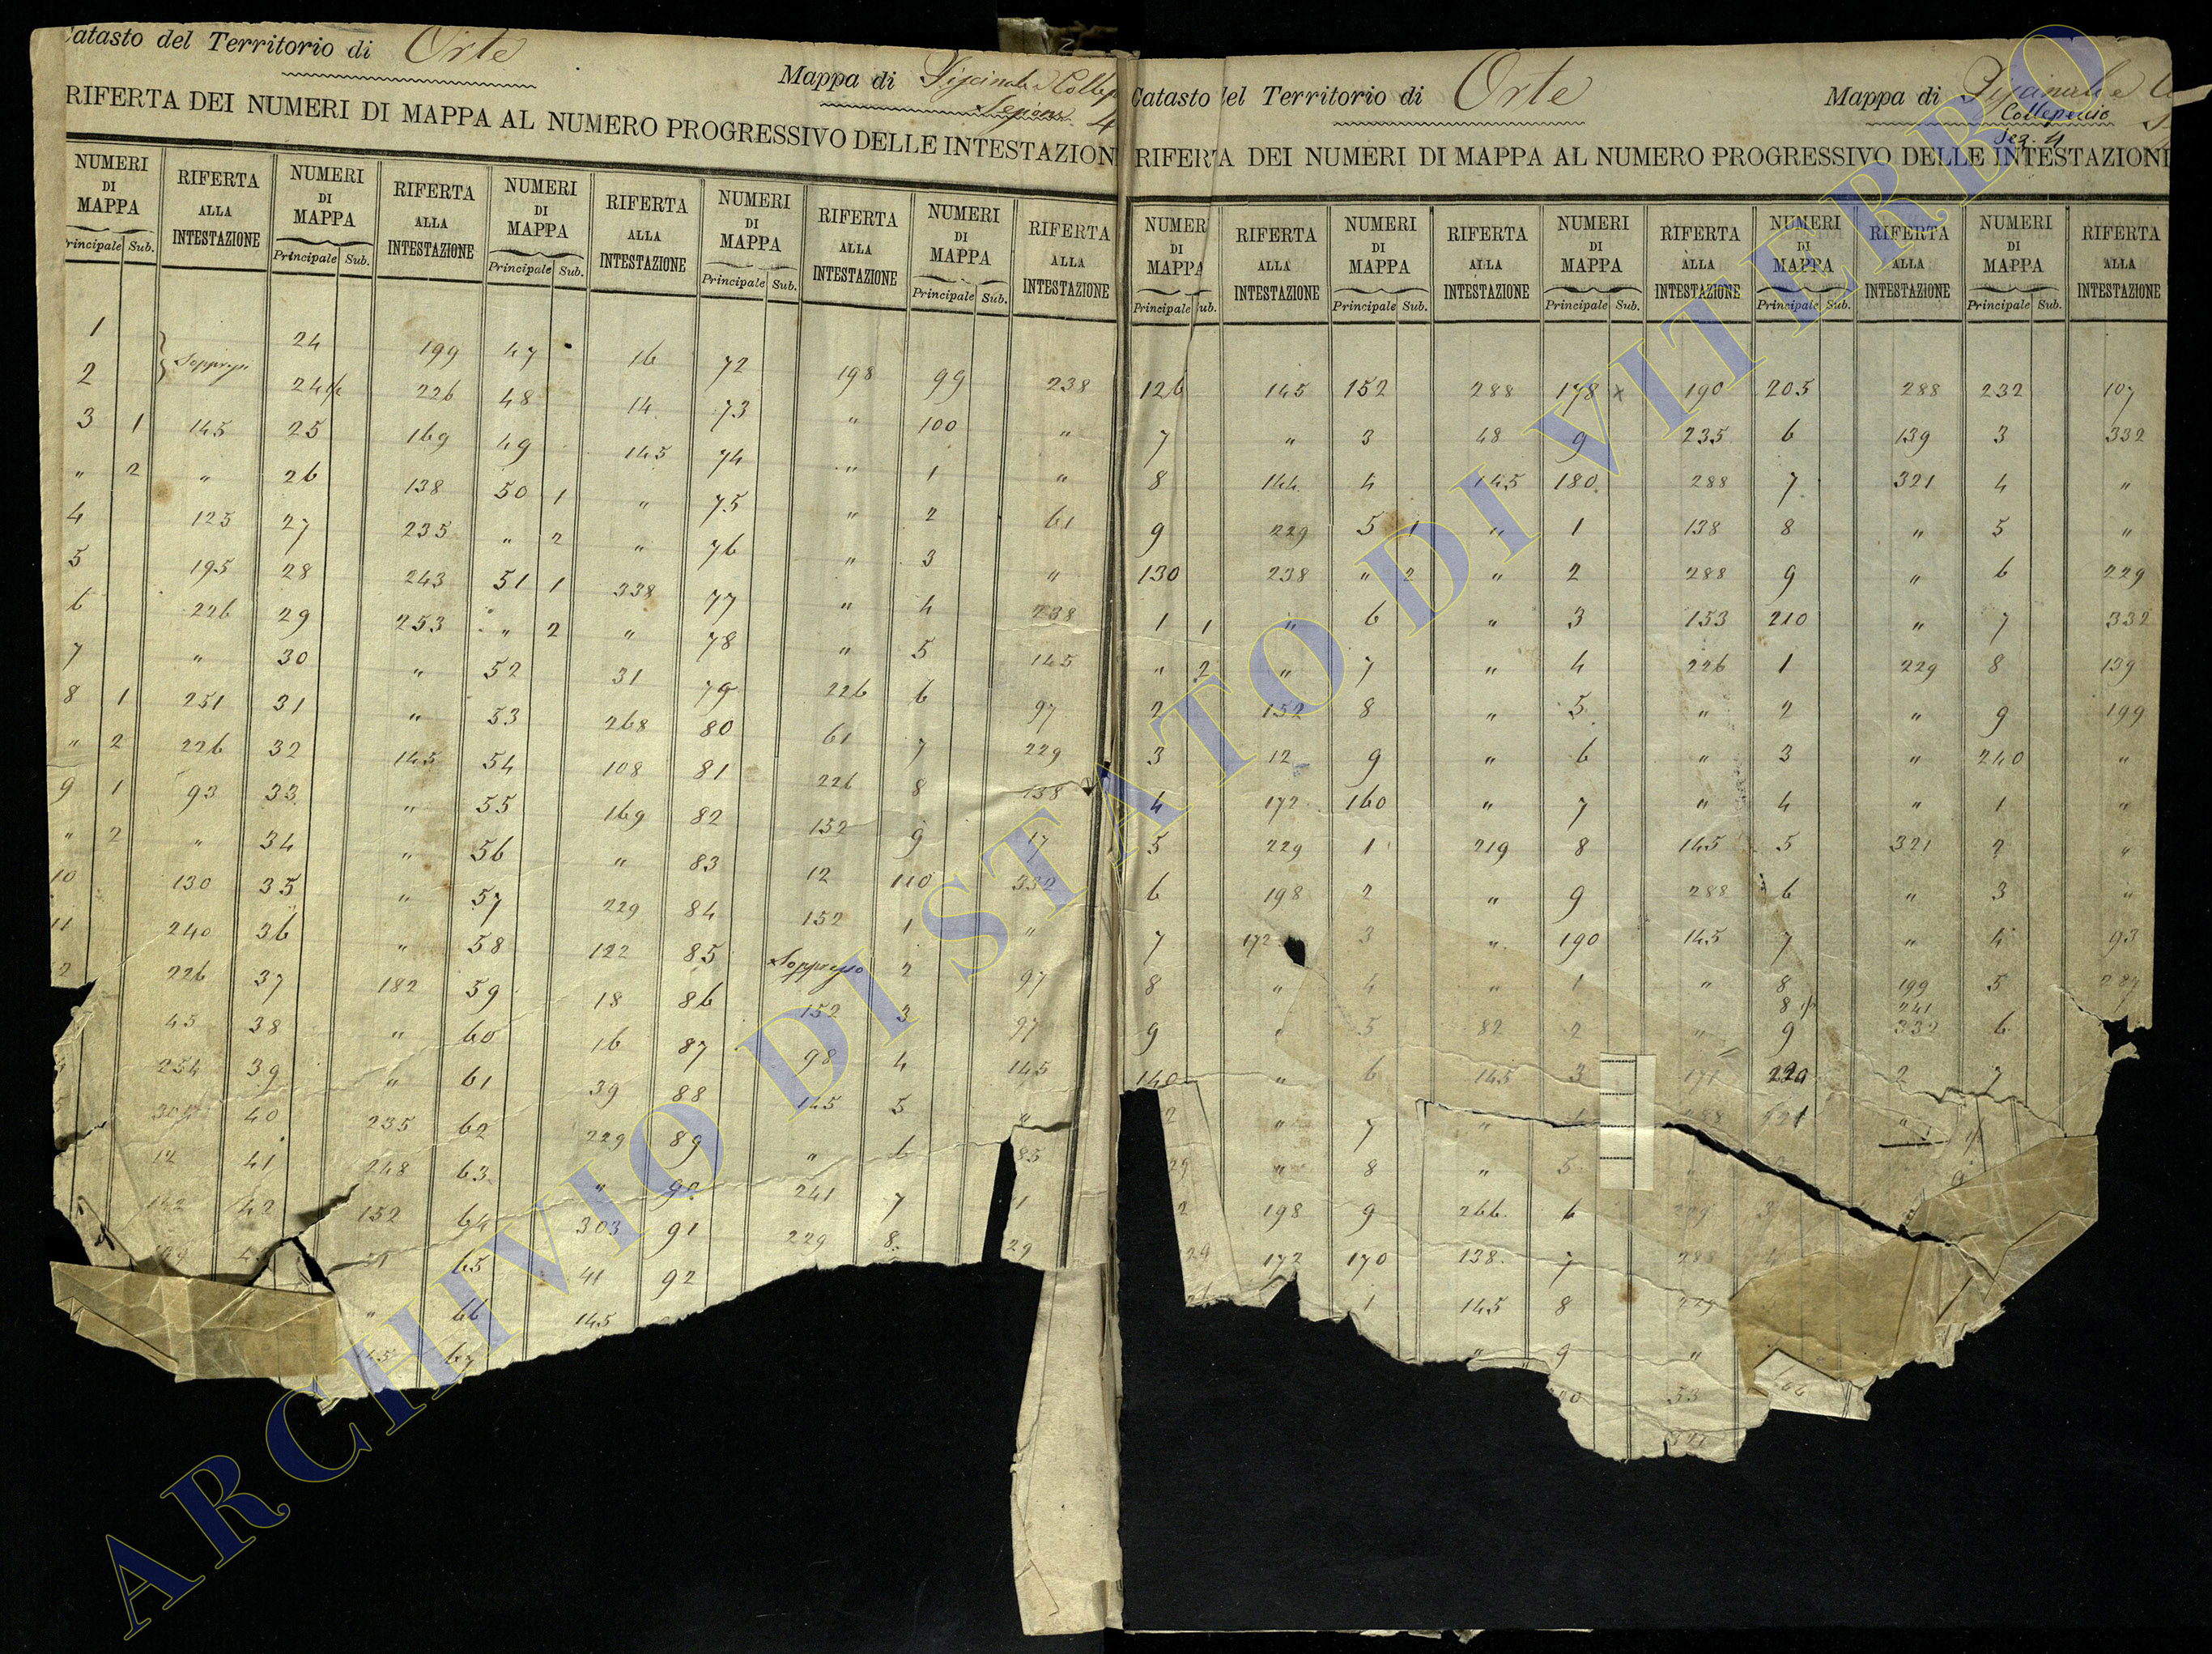 Catasto del Territorio di Orte
Mappa di
Sezione 4
RIFERTA DEI NUMERI DI MAPPA AL NUMERO PROGRESSIVO DELLE INTESTAZION
NUMERI DI MAPPA RIFERTA ALLA INTESTAZIONE NUMERI DI MAPPA RIFERTA ALLA INTESTAZIONE NUMERI DI MAPPA RIFERTA ALLA INTESTAZIONE NUMERI DI MAPPA RIFERTA ALLA INTESTAZIONE NUMERI DI MAPPA RIFERTA ALLA INTESTAZIONE
Principale Sub. Principale Sub. Principale Sub. Principale Sub. Principale Sub.
1 24 199 47 16 72 198 99 238
2 Soppressi 24 1/2 226 48 14 73 " 100 "
3 1 145 25 169 49 145 74 " 1 "
" 2 " 26 138 50 1 " 75 " 2 61
4 125 27 235 " 2 " 76 " 3 "
5 195 28 243 51 1 338 77 " 4 238
6 226 29 253 " 2 " 78 " 5 145
7 " 30 " 52 31 79 226 6 97
8 1 251 31 " 53 268 80 61 7 229
" 2 226 32 145 54 108 81 226 8 138
9 1 93 33 " 55 169 82 152 9 17
" 2 " 34 " 56 " 83 12 110 332
10 130 35 " 57 229 84 152 1 "
11 240 36 " 58 122 85 Soppresso 2 97
2 226 37 182 59 18 86 152 3 97
45 38 " 60 16 87 98 4 145
254 39 " 61 39 88 145 5 "
40 235 62 229 89 " 6 85
12 41 248 63 " 90 241 7 1
42 152 64 303 91 229 8 29
65 41 92
" 66 145
67
Catasto del Territorio di Orte
Mappa di
Collepeccio
Sez. 4
RIFERTA DEI NUMERI DI MAPPA AL NUMERO PROGRESSIVO DELLE INTESTAZIONI
NUMER DI MAPPA RIFERTA ALLA INTESTAZIONE NUMERI DI MAPPA RIFERTA ALLA INTESTAZIONE NUMERI DI MAPPA RIFERTA ALLA INTESTAZIONE NUMERI DI MAPPA RIFERTA ALLA INTESTAZIONE NUMERI DI MAPPA RIFERTA ALLA INTESTAZIONE
Principale ub. Principale Sub. Principale Sub. Principale Sub. Principale Sub.
126 145 152 288 178 x 190 205 288 232 107
7 " 3 48 9 235 6 139 3 332
8 144 4 145 180 288 7 321 4 "
9 229 5 1 " 1 138 8 " 5 "
130 238 " 2 " 2 288 9 " 6 229
1 1 " 6 " 3 153 210 " 7 332
" 2 " 7 " 4 226 1 229 8 139
2 152 8 " 5 " 2 " 9 199
3 12 9 " 6 " 3 " 240 "
4 172 160 " 7 " 4 " 1 "
5 229 1 219 8 145 5 321 2 "
6 198 2 " 9 288 6 " 3 "
7 172 3 " 190 145 7 " 4 93
8 " 4 " 1 " 8 199 5
8 1/2 241
9 " 5 82 2 " 9 332 6
140 " 6 145 3 171 220 2 7
2 " 7 " 288 221 "
29 " 8 " 5 "
2 198 9 266 6 229 3
29 172 170 138 7 288 4
1 145 8 229
" 9 "
53
ARCHIVIO DI STATO DI VITERBO